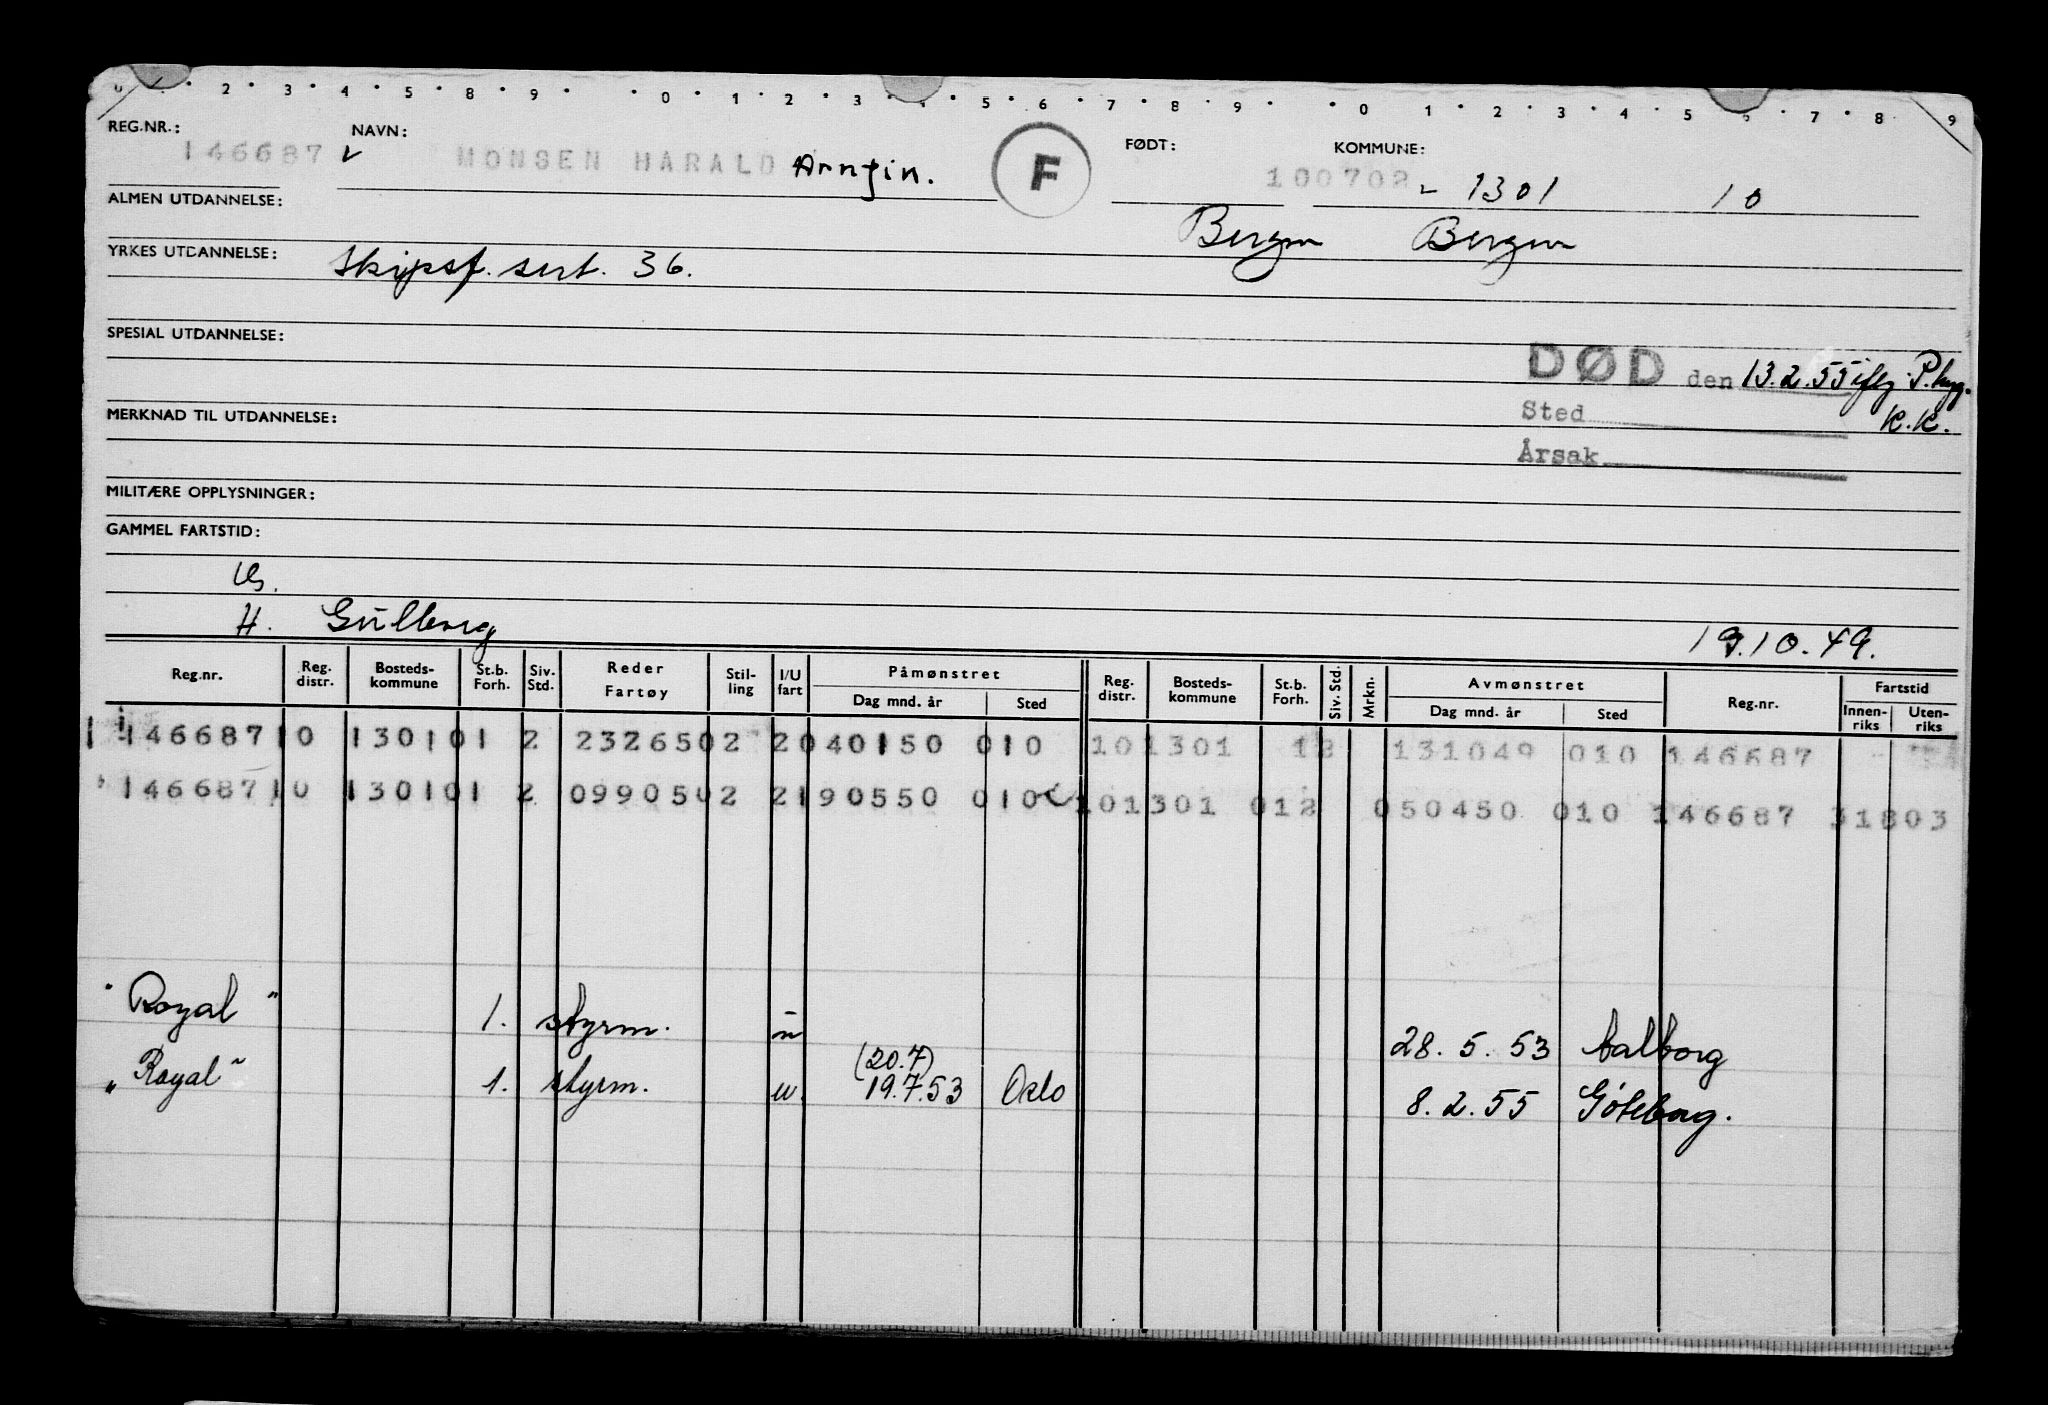 0 · 2 · 3 · 4 · 5 · 8 · 9 · · 0 · 1 · 2 · 3 · 4 · 5 · 6 · 7 · 8 · 9 · · 0 1 · 2 · 3 · 4 · 5 · 6 · 7 · 8 9
REG.NR.: NAVN: FØDT: KOMMUNE:
146687 MONSEN HARALD Arnfin. F 100702 1301 10
ALMEN UTDANNELSE: Bergen Bergen
YRKES UTDANNELSE: Skipsf. sert. 36.
SPESIAL UTDANNELSE:
DØD den 13.2.55 iflg. P.
MERKNAD TIL UTDANNELSE: Sted K.K.
Årsak
MILITÆRE OPPLYSNINGER:
GAMMEL FARTSTID:
H. Gullberg 19.10.49.
Reg.nr. Reg. distr. Bosteds- kommune St.b. Forh. Siv. Std. Reder Fartøy Stil- ling I/U fart Påmønstret Reg. distr. Bosteds- kommune St.b. Forh. Siv. Std. Mrkn. Avmønstret Reg.nr. Fartstid
Dag mnd. år Sted Dag mnd. år Sted Innen- riks Uten- riks
146687 10 1301 01 2 232650 2 2 040150 010 10 1301 12 131049 010 146687
146687 10 1301 01 2 099050 2 2 190550 010 10 1301 012 050450 010 146687 31803
"Royal" 1. styrm. u 28.5.53 Aalborg
(20.7)
"Royal" 1. styrm. u. 19.7.53 Oslo 8.2.55 Göteborg.